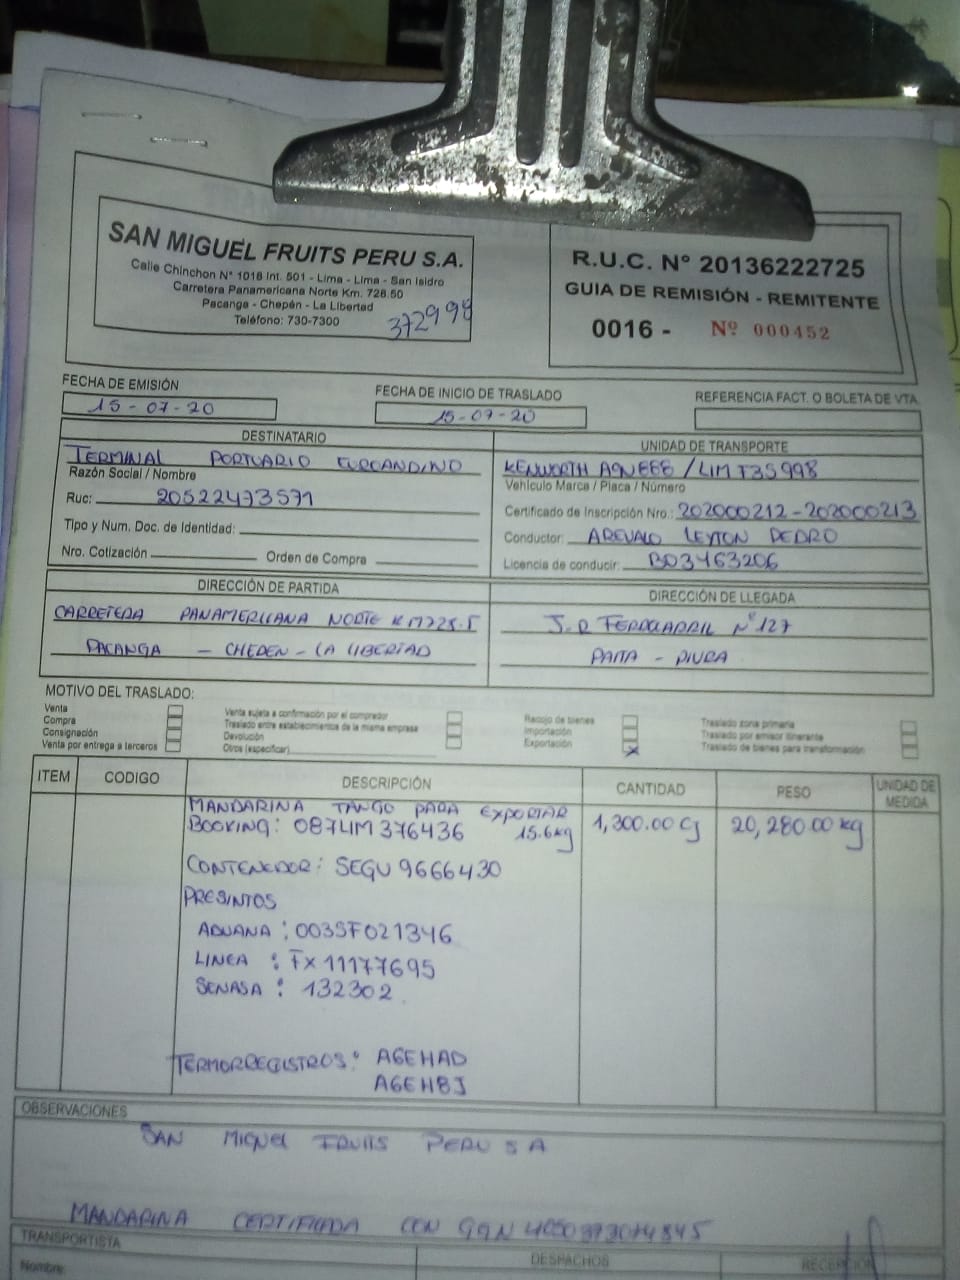 SAN MIGUEL FRUITS PERU S.A.
Calle Chinchon N° 1018 Int. 501 - Lima - Lima - San Isidro
Carretera Panamericana Norte Km. 728.50
Pacanga - Chepén - La Libertad
Teléfono: 730-7300
372998
R.U.C. N° 20136222725
GUIA DE REMISIÓN - REMITENTE
0016 - Nº 000452
FECHA DE EMISIÓN
15-07-20
FECHA DE INICIO DE TRASLADO
15-07-20
REFERENCIA FACT. O BOLETA DE VTA.
DESTINATARIO
TERMINAL PORTUARIO EUROANDINO
Razón Social / Nombre
Ruc: 20522473571
Tipo y Num. Doc. de Identidad:
Nro. Cotización Orden de Compra
UNIDAD DE TRANSPORTE
KENWORTH /
Vehículo Marca / Placa / Número
Certificado de Inscripción Nro.: 202000212-202000213
Conductor: AREVALO LEYTON PEDRO
Licencia de conducir: B03463206
DIRECCIÓN DE PARTIDA
CARRETERA PANAMERICANA NORTE KM728.5
PACANGA - CHEPEN - LA LIBERTAD
DIRECCIÓN DE LLEGADA
J.R FERROCARRIL N°127
PAITA - PIURA
MOTIVO DEL TRASLADO:
Venta
Compra
Consignación
Venta por entrega a terceros
Venta sujeta a confirmación por el comprador
Traslado entre establecimientos de la misma empresa
Devolución
Otros (especificar)
Recojo de bienes
Importación
Exportación X
Traslado zona primaria
Traslado por emisor itinerante
Traslado de bienes para transformación
ITEM CODIGO DESCRIPCIÓN CANTIDAD PESO UNIDAD DE MEDIDA
MANDARINA TANGO PARA EXPORTAR
BOOKING: 087LIM376436 15.6kg 1,300.00 Cj 20,280.00 kg
CONTENEDOR: SEGU9666430
PRESINTOS
ADUANA: 003SF021346
LINEA : FX11177695
SENASA : 132302
TERMORREGISTROS: AGEHAD
AGEH8J
OBSERVACIONES
SAN MIGUEL FRUITS PERU S A
MANDARINA CERTIFICADA CON GGN
TRANSPORTISTA
Nombre:
DESPACHOS
RECEPCIÓN